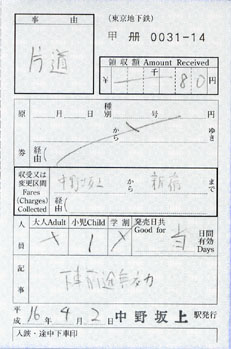 事由
(東京地下鉄)
甲 冊 0031-14
片道
領収額 Amount Received
¥ 千 80 円
原券
月 日 種別 号 から ゆき
経由( )
収受又は変更区間 Fares (Charges) Collected
中野坂上 から 新宿 まで
経由( )
人員
大人Adult 小児Child 学割 発売日共 Good for 日間有効 Days
× 1 × 当
記事
平成 16年 4月 2日 中野坂上 駅発行
入鋏・途中下車印